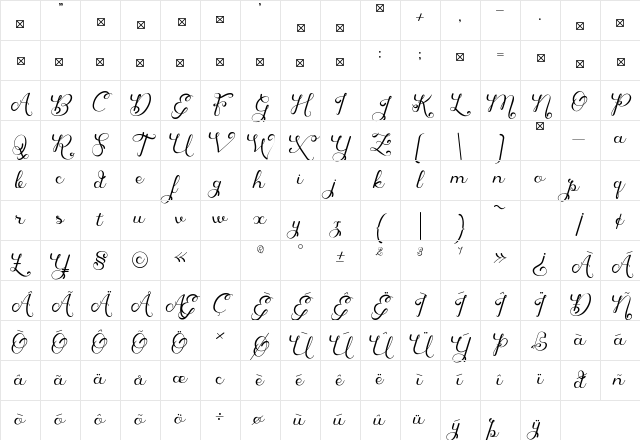 " ' + , – .
: ; =
A B C D E F G H I J K L M N O P
Q R S T U V W X Y Z [ \ ] — a
b c d e f g h i j k l m n o p q
r s t u v w x y z { | } ~ ¡ ¢
£ ¥ § © « ª ° ± 2 3 » ¿ À Á
Â Ã Ä Å Æ Ç È É Ê Ë Ì Í Î Ï Ð Ñ
Ò Ó Ô Õ Ö × Ø Ù Ú Û Ü Ý Þ ß à á
â ã ä å æ ç è é ê ë ì í î ï ð ñ
ò ó ô õ ö ÷ ø ù ú û ü ý þ ÿ